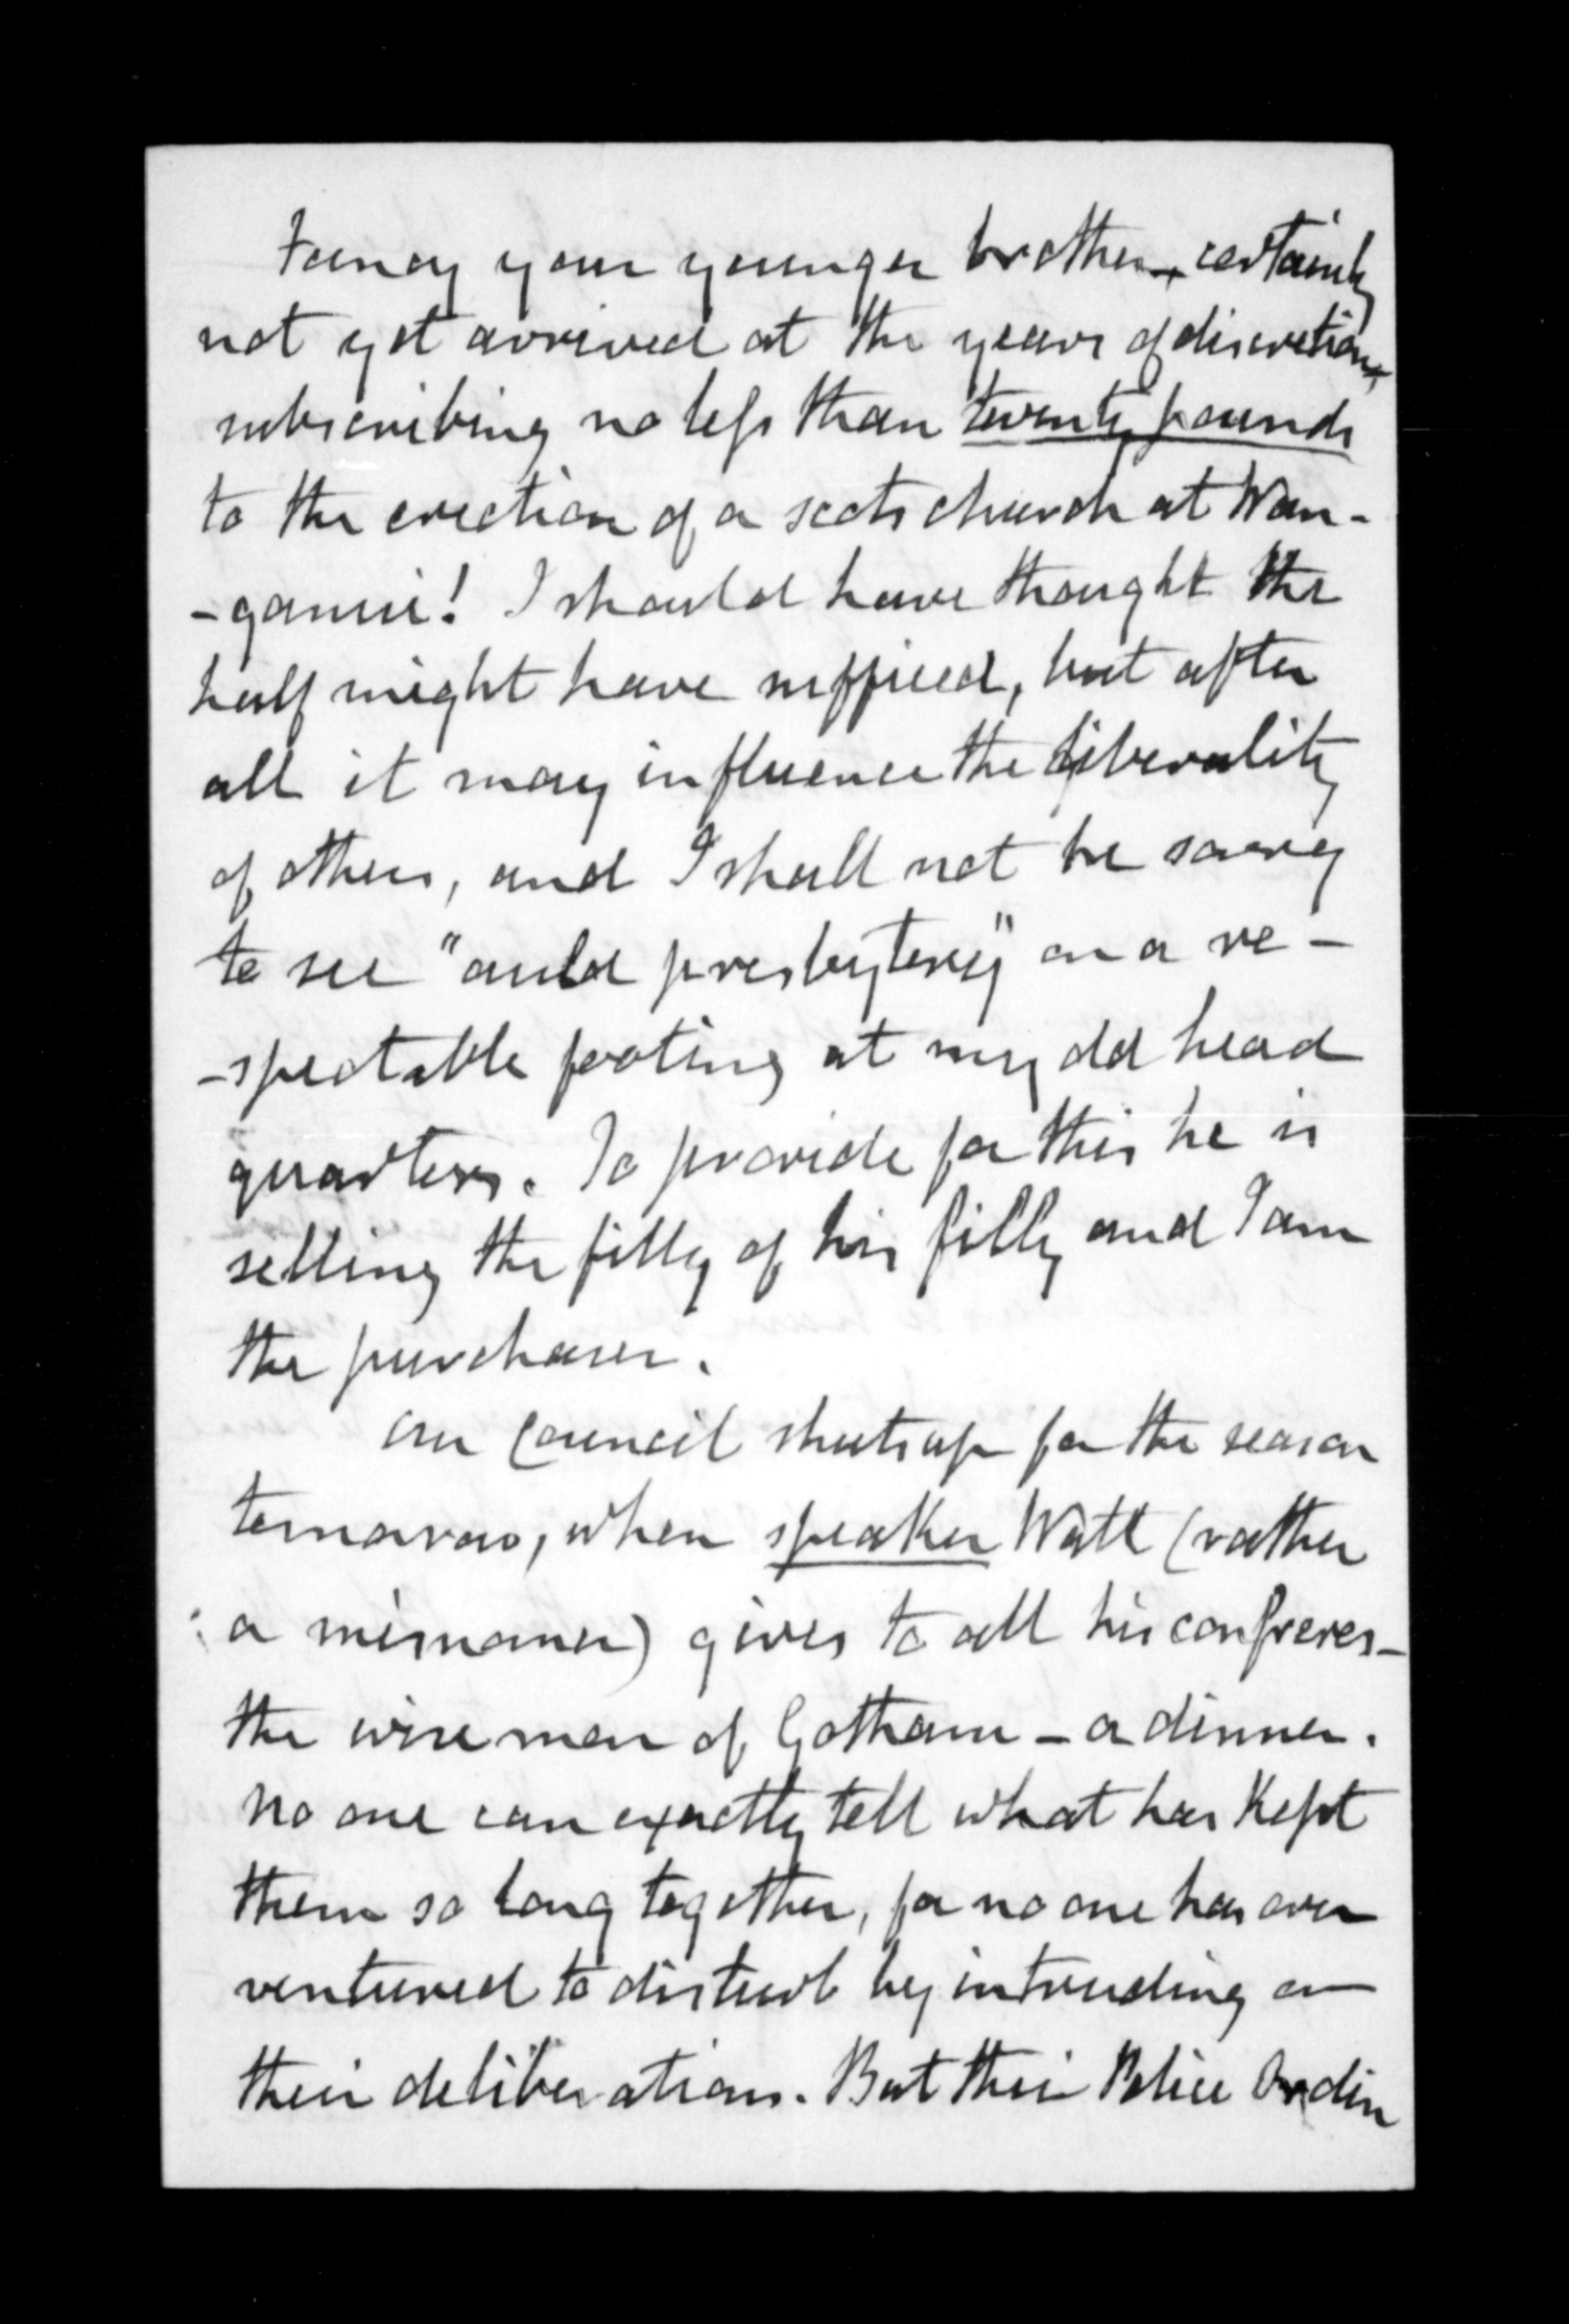 Fancy your younger brother, certainly
not yet arrived at the years of discretion,
subscribing no less than twenty pounds
to the erection of a scots church at Wan-
-ganui! I should have thought the
half might have sufficed, but after
all it may influence the liberality
of others, and I shall not be sorry
to see "auld presbytery" on a re-
-spectable footing at my old head
quarters. To provide for this he is
selling the filly of his filly and I am
the purchaser.
Our Council shuts up for the season
tomorrow, when speaker Watt (rather
a misnomer) gives to all his confreres-
the wise men of Gotham - a dinner.
No one can exactly tell what has kept
them so long together, for no one has ever
ventured to disturb by intruding on
their deliberations. But their Police Ordin